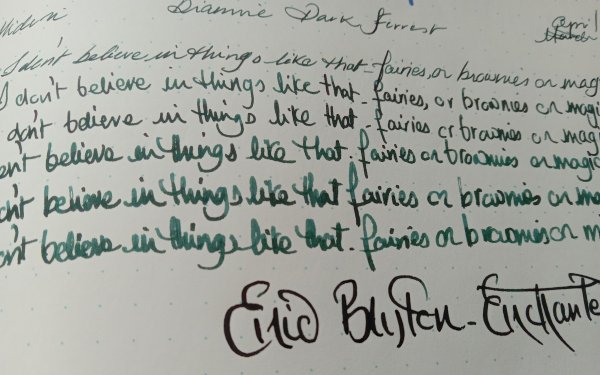 Diamine Dark Forrest
I don't believe in things like that - fairies, or brownies or magi
I don't believe in things like that - fairies, or brownies or magi
don't believe in things like that - fairies or brownies or magi
n't believe in things like that - fairies or brownies or magic
n't believe in things like that fairies or brownies or ma
n't believe in things like that - fairies or brownies or m
Enid Blyton - Enchante